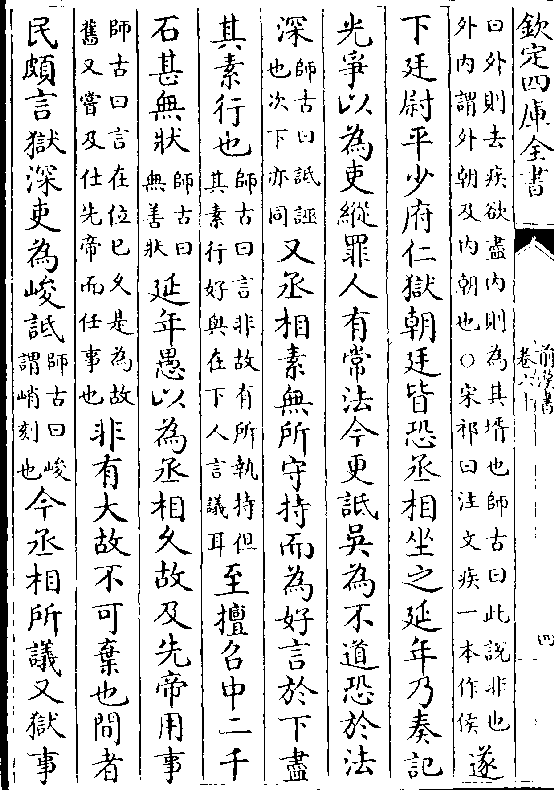 欽定四庫全書
前漢書
卷六十
四
曰外則去疾欲盡内則為其壻也師古曰此說非也
外内謂外朝及内朝也○宋祁曰注文疾一本作侯
遂
下廷尉平少府仁獄朝廷皆恐丞相坐之延年乃奏記
光爭以為吏縱罪人有常法今更詆吳為不道恐於法
深師古曰詆誣也次下亦同又丞相素無所守持而為好言於下盡
其素行也師古曰言非故有所執持但其素行好與在下人言議耳至擅召中二千
石甚無狀師古曰無善狀延年愚以為丞相久故及先帝用事
師古曰言在位已久是為故舊又嘗及仕先帝而任事也非有大故不可棄也間者
民頗言獄深吏為峻詆師古曰峻謂峭刻也今丞相所議又獄事